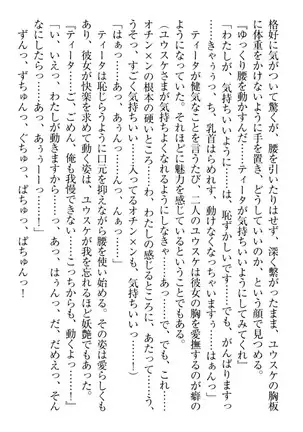 格好に気がついて驚くが、腰を引いたりはせず、深く繋がったまま、ユウスケの胸板
に体重をかけないように手を置き、どうしていいのか、という顔で見つめる。
『ゆっくり腰を動かすんだ……ティータが気持ちいいようにしてみてくれ』
「わたしが、気持ちいいように……は、恥ずかしいです……でも、がんばりますっ
……きゃぁうっ、ち、乳首はらめれす、動けなくなっちゃいますぅ……はぁんっ」
　ティータが健気なことを言うので、二人のユウスケは彼女の胸を愛撫するのが癖の
ようになっていた。それほどに魅力を感じているということでもある。
（ユウスケさまが、気持ちよくなれるようにしなきゃ……あっ……で、でも、これ
……オチン×ンの根本の硬いところ……わ、わたしの感じるところに、あたって……う、
うそっ、すごく気持ちいい……入ってるオチン×ンも、気持ちいいっ……）
「はぁっ……あっ、あぁんっ……んっ、んぁっ……」
　ティータは恥じらうように口元を抑えながら腰を使い始める。その姿は愛らしくも
あり、彼女が快楽を求めて動く姿は、ユウスケが我を忘れるほど妖艶でもあった。
「ティータ……ご、ごめん、俺も我慢できない……こっちからも、動くよっ……！」
「い、いえっ、わたしが動きますから……っ、あっ、あぅぅーーっ……！」
なにしたらっ……あっ、あっ、だ、だめえっ、そん
ずんっ、ずちゅんっ、ぐちゅっ、ぱちゅっ、ぱちゅんっ！